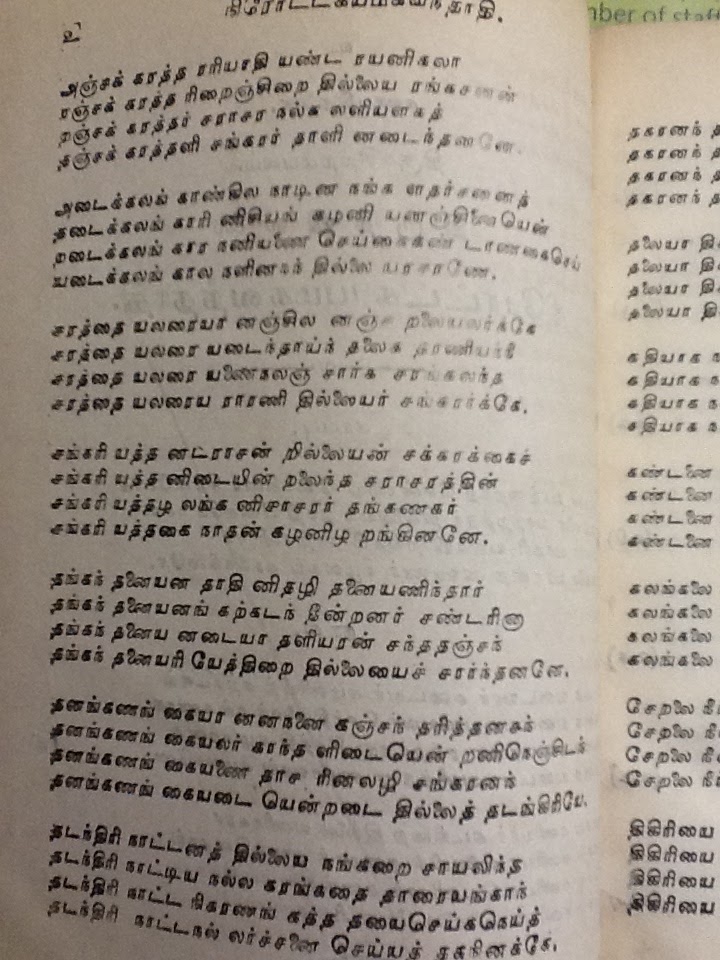 நிரோட்டகயமகவந்தாதி.
ber of staff
உ
அஞ்சக் கரத்த ரரியாதி யண்ட ரயனிகலா
ரஞ்சக் கரத்த ரிறைஞ்சிறை தில்லைய ரங்கசனன்
றஞ்சக் கரத்தர் சராசர நல்க லளியளகத்
தஞ்சக் கரத்தளி சங்கரர் தாளி னடைந்தனனே.
அடைக்கலங் காண்கில நாடின நங்க ளதர்சனைத்
தடைக்கலங் காரி னிசியங் கழனி யனஞ்சினையென்
றடைக்கலங் கார நனியணை செய்கைகண் டாணகைசெய்
யடைக்கலங் கால நளினகந் தில்லை யரசரணே.
சரத்தை யலரையா னஞ்சில னஞ்ச றலையலர்க்கே
சரத்தை யலரை யடைந்தாய்ந் தலைக தாணியந்தீ
சரத்தை யலரை யணைநலஞ் சார்க சரங்கலந்த
சரத்தை யலரைய ராரணி தில்லையர் சங்கரர்க்கே.
சங்கரி யத்த னடராசன் றில்லையன் சக்கரக்கைச்
சங்கரி யத்த னிடையின் றலைந்த சராசரத்தின்
சங்கரி யத்தழ லங்க னிசாசரர் தங்கணகர்
சங்கரி யத்தகை நாதன் கழனிழ றங்கினனே.
தங்கந் தனையன தாதி னிதழி தனையணிந்தார்
தங்கந் தனையனங் கற்கடந் தீன்றனர் சண்டரினா
தங்கந் தனைய னடையா தளியரன் சந்ததஞ்சந்
தங்கந் தனையரி யேத்திறை தில்லையைச் சார்ந்தனனே.
தனங்கணங் கையா னனநனை கஞ்சந் தரித்தனசுந்
தனங்கணங் கையலர் காந்த ளிடையென் றணிநெஞ்சிடந்
தனங்கணங் கையணை தாச ரினலழி சங்கரனந்
தனங்கணங் கையடை யென்றடை தில்லைத் தடங்கிரியே.
தடந்திரி நாட்டனத் தில்லைய நங்கறை சாயலிந்த
தடந்திரி நாட்டிய நல்ல கரங்கதை தாரையங்கான்
தடந்திரி நாட்ட நிகரணங் கத்த தயைசெய்கநெய்த்
தடந்திரி நாட்டநல் லர்ச்சனை செய்யத் தகரினக்கே.
தகரனந்
தகரனந்
தகரனந்
தகரனந்
தலையா
தலையா
தலையா
தலையா
கதியாக
கதியாக
கதியாக
சதியாக
கண்டனை
கண்டனை
கண்டனை
கண்டனை
கலங்கலை
கலங்கலை
கலங்கலை
கலங்கலை
சேறலை
சேறலை
சேறலை
சேறலை
கிகிரியை
கிகிரியை
கிகிரியை
கிகிரியை